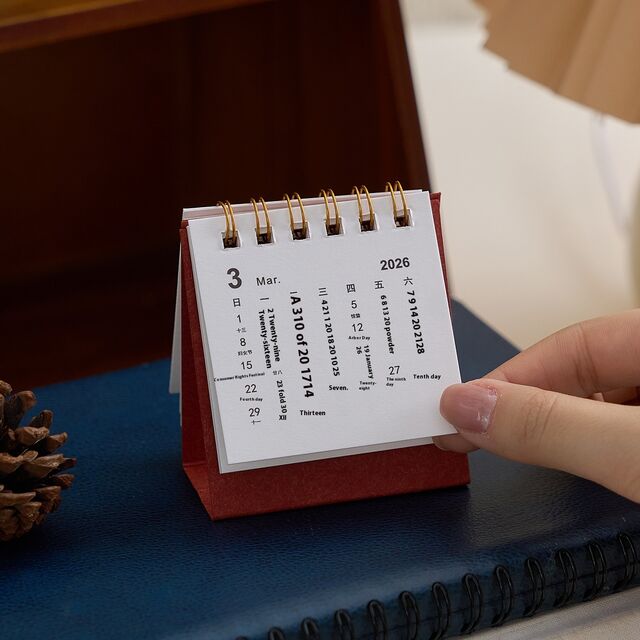 3 Mar. 2026
日 一 二 三 四 五 六
1
十三
8
妇女节
15
Consumer Rights Festival
22
Fourth day
29
十一
2 Twenty-nine
Twenty-sixteen
廿八
23 told 30
A 310 of 20 1714
Thirteen
4 21 1 20 18 20 10 25
Seven.
5
12
Arbor Day
19 January
26
Twenty-eight
6 8 13 20 powder
27
The ninth day
7 9 14 20 2128
Tenth day